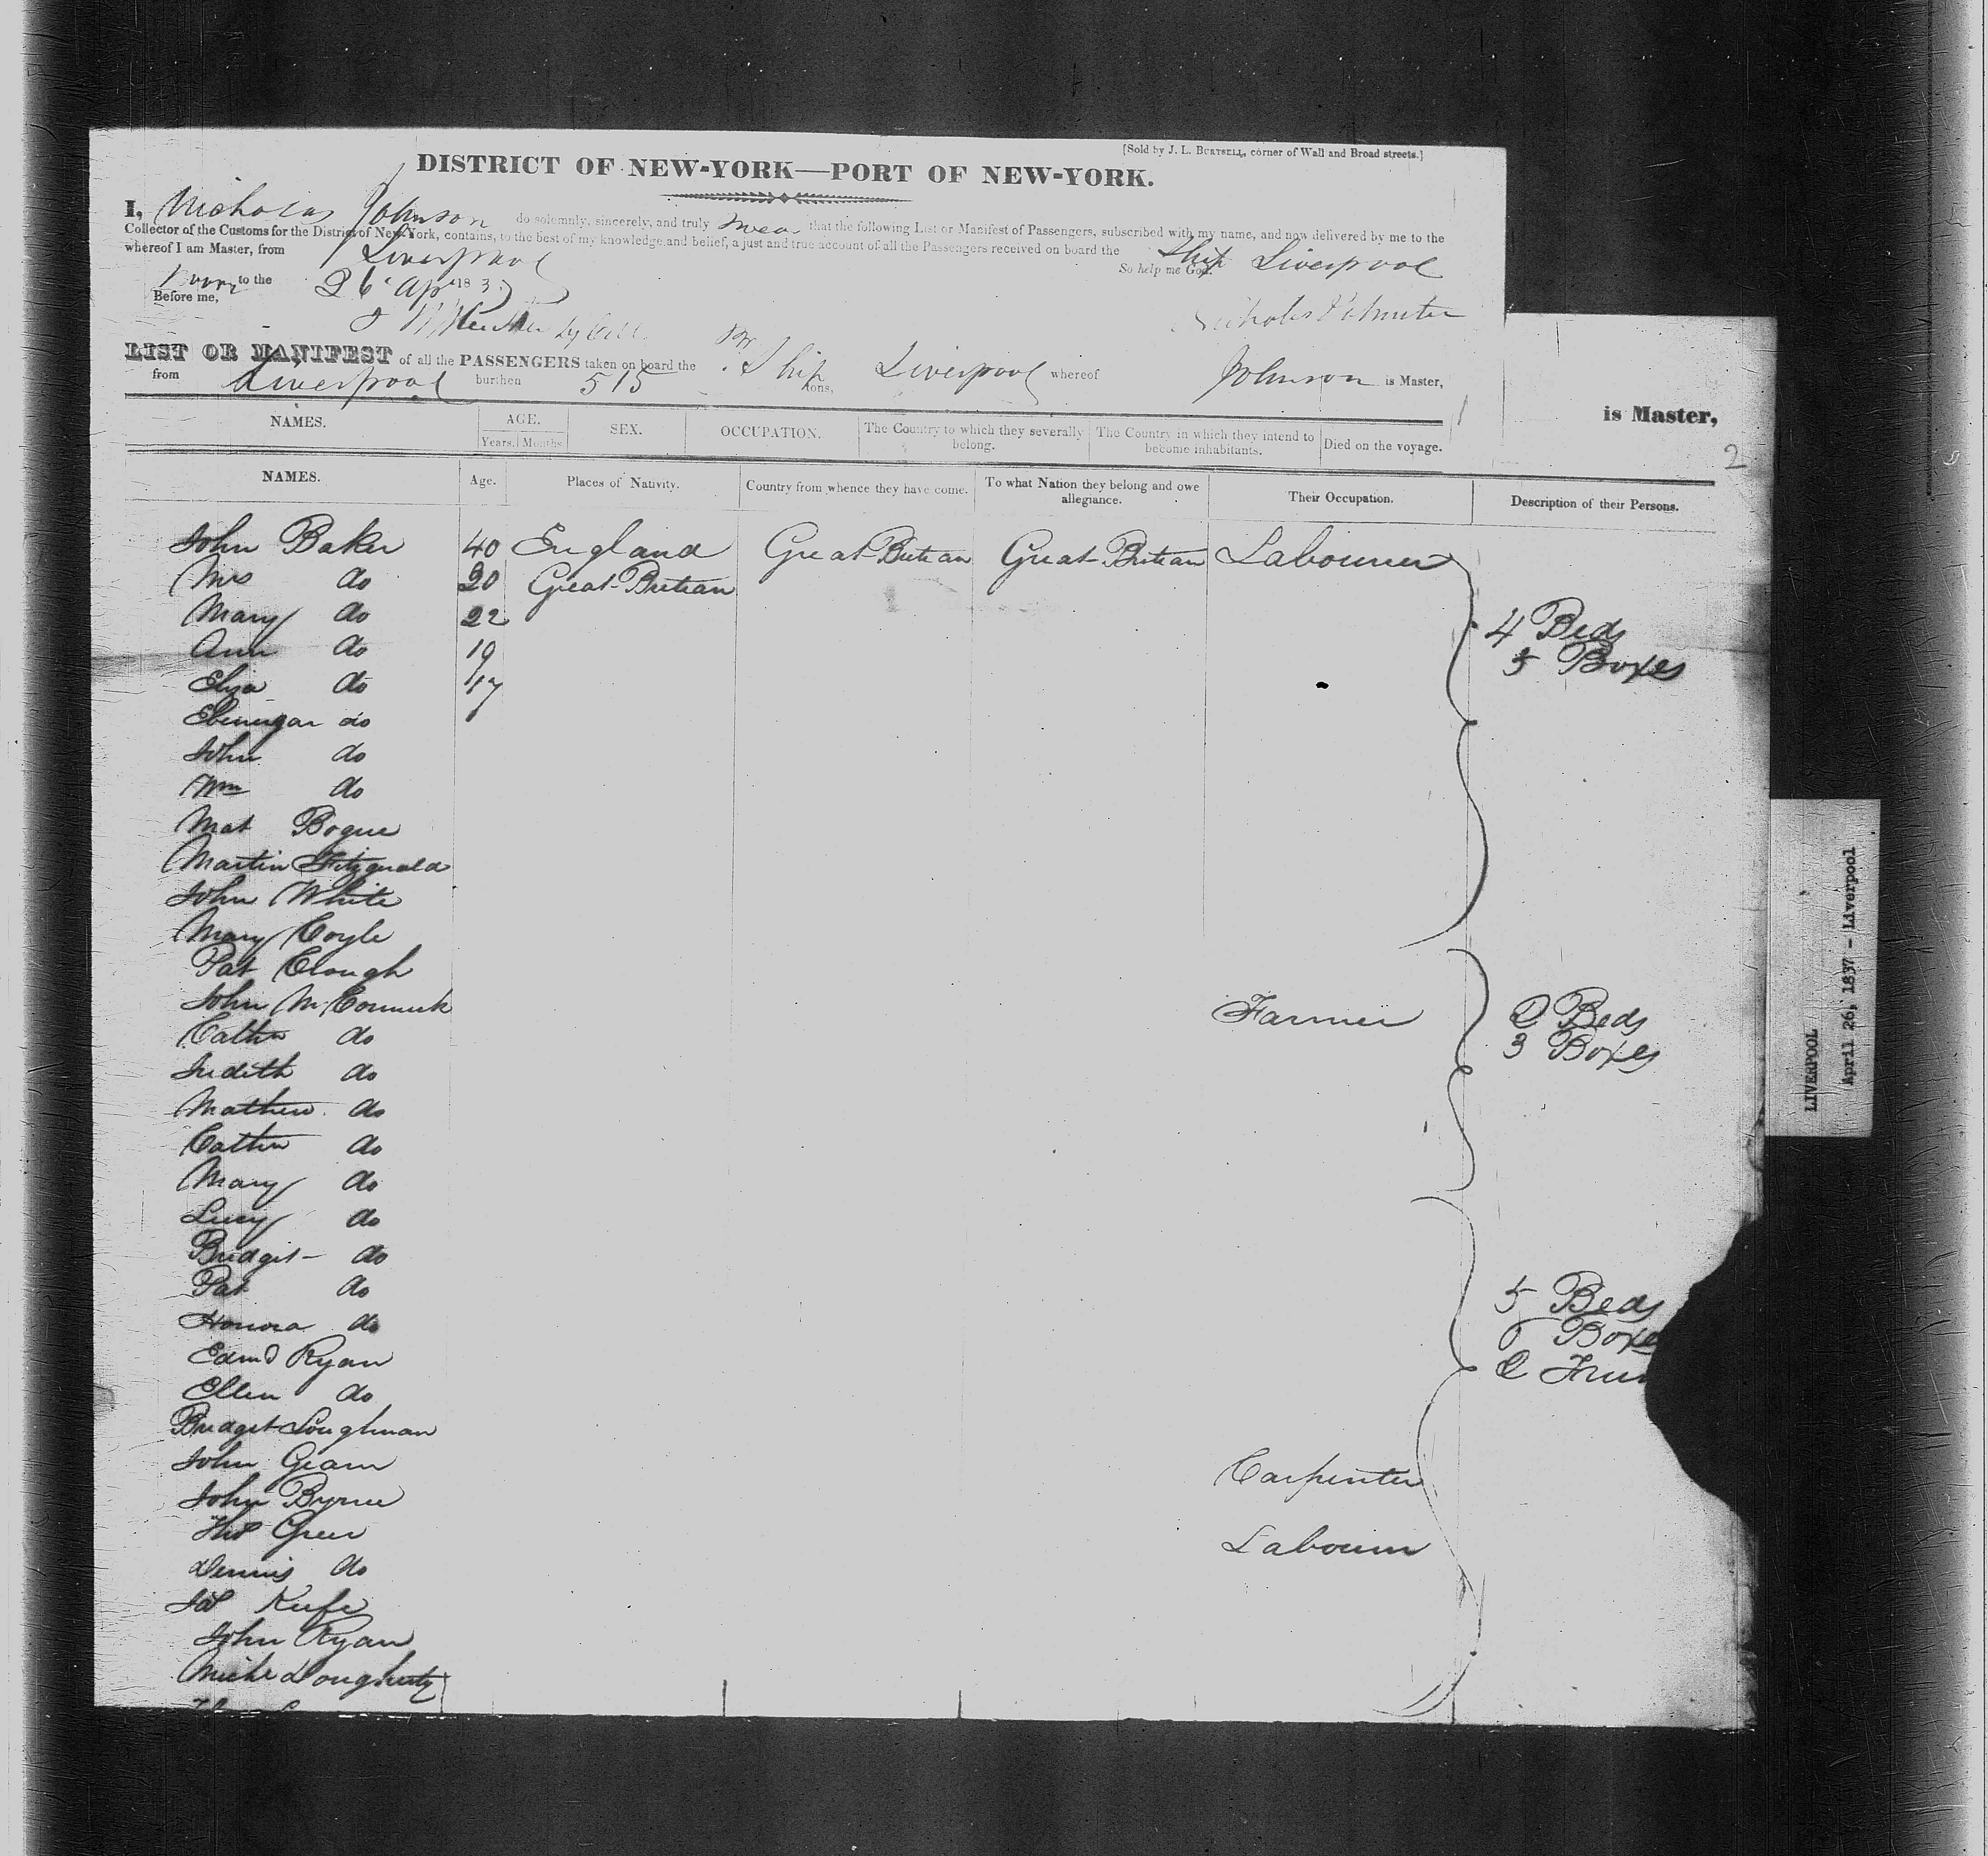 [Sold by J. L. BURTSELL, corner of Wall and Broad streets.]
DISTRICT OF NEW-YORK—PORT OF NEW-YORK.
I, Nicholas Johnson do solemnly, sincerely, and truly swear that the following List or Manifest of Passengers, subscribed with my name, and now delivered by me to the
Collector of the Customs for the District of New-York, contains, to the best of my knowledge and belief, a just and true account of all the Passengers received on board the Ship Liverpool
whereof I am Master, from Liverpool
So help me God.
to the 26 Ap 183
Before me,
LIST OR MANIFEST of all the PASSENGERS taken on board the Ship Liverpool whereof Johnson is Master,
from Liverpool burthen 515 tons,
is Master,
2
NAMES. AGE. SEX. OCCUPATION. The Country to which they severally belong. The Country in which they intend to become inhabitants. Died on the voyage.
Years. Months
NAMES. Age. Places of Nativity. Country from whence they have come. To what Nation they belong and owe allegiance. Their Occupation. Description of their Persons.
John Baker 40 England Great Britian Great Britian Labourer
Mrs do 20 Great Britian
Mary do 22
4 Beds
Ann do 19
5 Boxes
Eliza do 17
Ebenezar do
John do
Wm do
Mat Bogue
Martin Fitzgerald
John White
Mary Coyle
Pat Clough
John McCormick Farmer 2 Beds
Cathn do 3 Boxes
Judith do
Mathew do
Cathn do
Mary do
Lucy do
Bridget do
Pat do 5 Beds
Honora do Boxes
Edmd Ryan 2 Trun
Ellen do
Bridget Loughman
John Carpenter
John Byrne
Thos Greer Labourer
Dennis do
Jas Keefe
John Ryan
Michl Dougherty
LIVERPOOL
April 26, 1837 - Liverpool